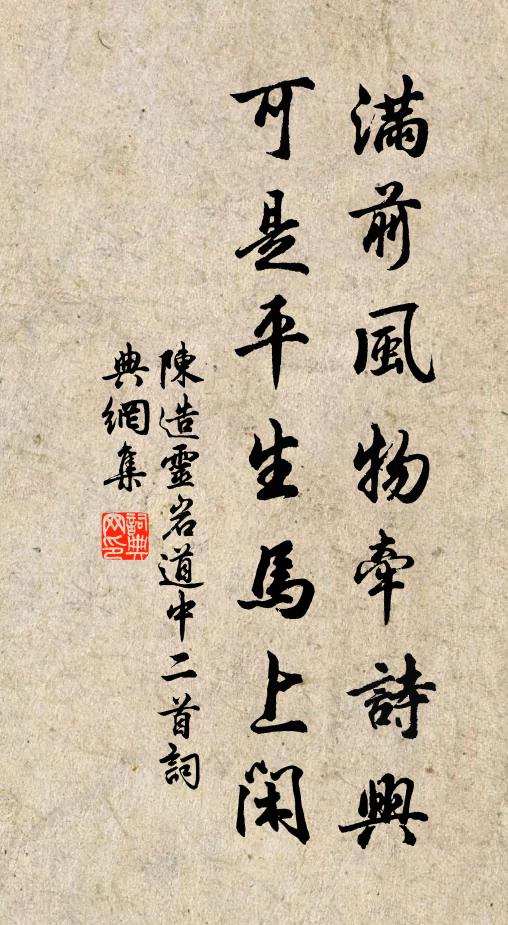 滿前風物牽詩興
可是平生馬上閑
陳造靈岩道中二首詞
典網集
詞典
网印